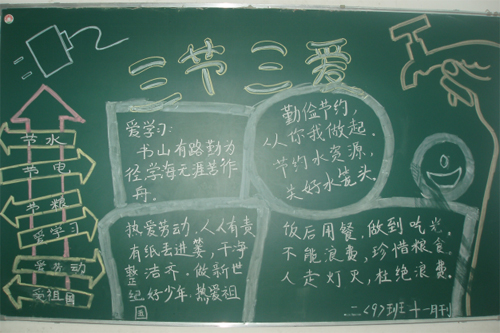 三节三爱
节水
节电
节粮
爱学习
爱劳动
爱祖国
爱学习:
书山有路勤为
径学海无涯苦作
舟.
勤俭节约,
从你我做起.
节约水资源,
关好水笼头.
热爱劳动,人人有责
有纸丢进篓,干净
整洁齐,做新世
纪好少年.热爱祖
国
饭后用餐,做到吃光.
不能浪费,珍惜粮食.
人走灯灭,杜绝浪费.
二(9)班十一月刊